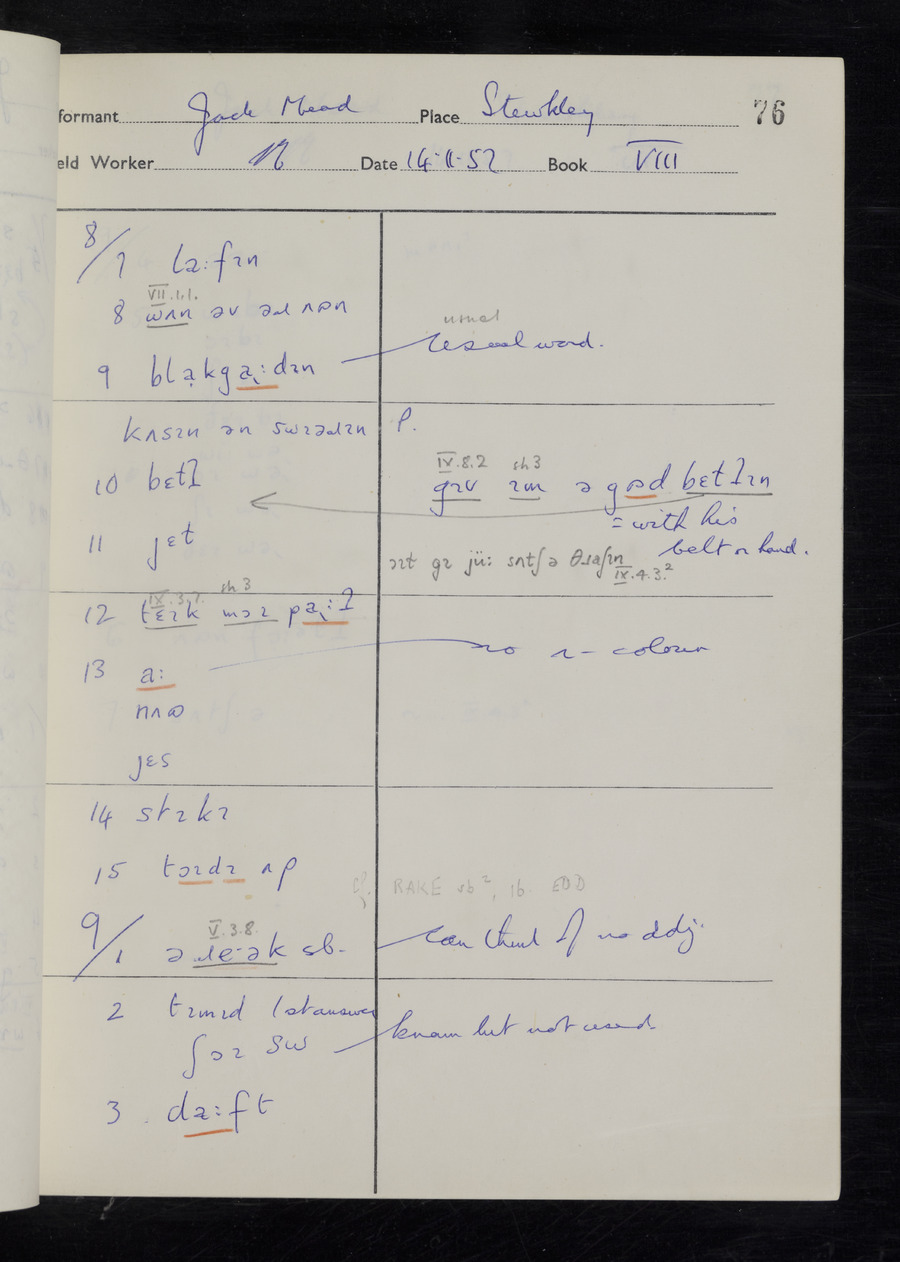 formant Jack Mead Place Stewkley 76
eld Worker Date 14·11·52 Book VIII
8/7 lạ:fɪn
VII.1.1.
8 ωʌn əv əɹ ʌɒn
usual
9 blạkgạ:dɪn usual word.
kʌsɪn ən swɪəɹɪn p.
IV.8.2 sh 3
10 bɛtɫ gɪv ɪm ə gɒd bɛtɫɪn
= with his
belt or hand.
11 jɛt
ɔɪt gɪ jü: sʌtʃ ə θɹaʃɪn
IX.4.3.²
IX.3.7. sh 3
12 tɛɪk mɔɪ pạ:ɫ
13 a: no r-colour
nʌω
jɛs
14 stɪkɪ
15 tɔɪdɪ ʌp
cf. RAKE sb², 1b. EDD
V.3.8.
9/1 ə ɹe·ək sb. can think of no adj.
2 tɪmɪd 1st answer
ʃɔɪ sw known but not used
3 da:ft